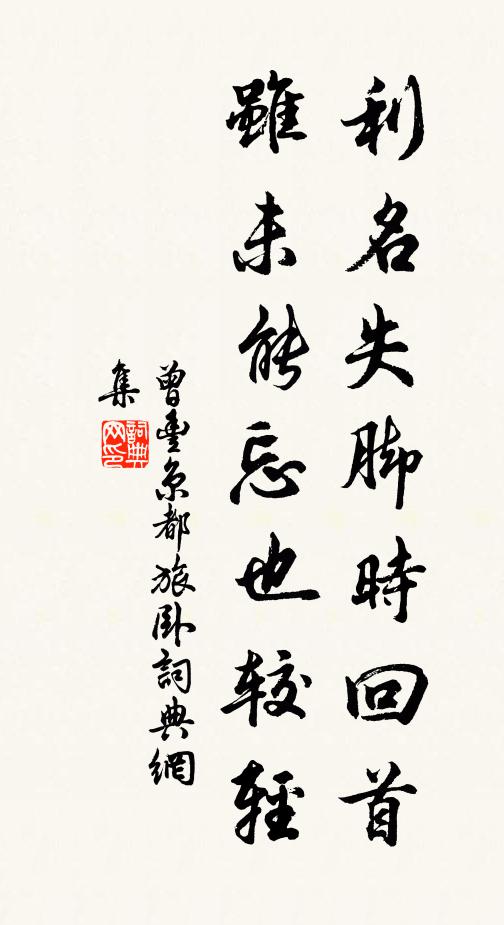 利名失脚時回首
雖未能忘也較輕
曾豐京都旅卧詞典網
集
詞典
网印